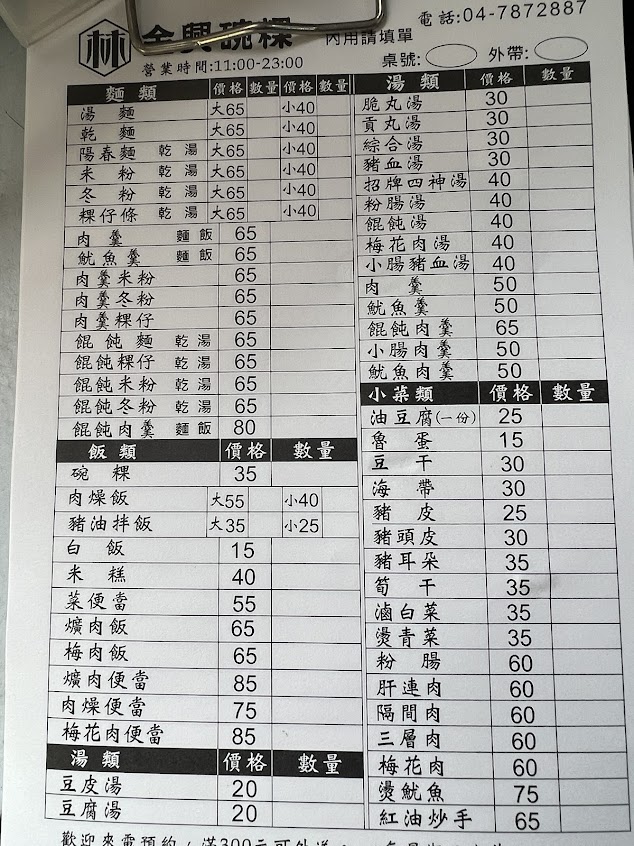 林 金興碗粿
電話:04-7872887
內用請填單
營業時間:11:00-23:00
桌號: 外帶:
麵類 價格 數量 價格 數量
湯麵 大65 小40
乾麵 大65 小40
陽春麵 乾 湯 大65 小40
米粉 乾 湯 大65 小40
冬粉 乾 湯 大65 小40
粿仔條 乾 湯 大65 小40
肉羹 麵 飯 65
魷魚羹 麵 飯 65
肉羹米粉 65
肉羹冬粉 65
肉羹粿仔 65
餛飩麵 乾 湯 65
餛飩粿仔 乾 湯 65
餛飩米粉 乾 湯 65
餛飩冬粉 乾 湯 65
餛飩肉羹 麵 飯 80
飯類 價格 數量
碗粿 35
肉燥飯 大55 小40
豬油拌飯 大35 小25
白飯 15
米糕 40
菜便當 55
爌肉飯 65
梅肉飯 65
爌肉便當 85
肉燥便當 75
梅花肉便當 85
湯類 價格 數量
豆皮湯 20
豆腐湯 20
湯類 價格 數量
脆丸湯 30
貢丸湯 30
綜合湯 30
豬血湯 30
招牌四神湯 40
粉腸湯 40
餛飩湯 40
梅花肉湯 40
小腸豬血湯 40
肉羹 50
魷魚羹 50
餛飩肉羹 65
小腸肉羹 50
魷魚肉羹 50
小菜類 價格 數量
油豆腐(一份) 25
魯蛋 15
豆干 30
海帶 30
豬皮 25
豬頭皮 30
豬耳朵 35
筍干 35
滷白菜 35
燙青菜 35
粉腸 60
肝連肉 60
隔間肉 60
三層肉 60
梅花肉 60
燙魷魚 75
紅油炒手 65
歡迎來電預約,滿300元可外送